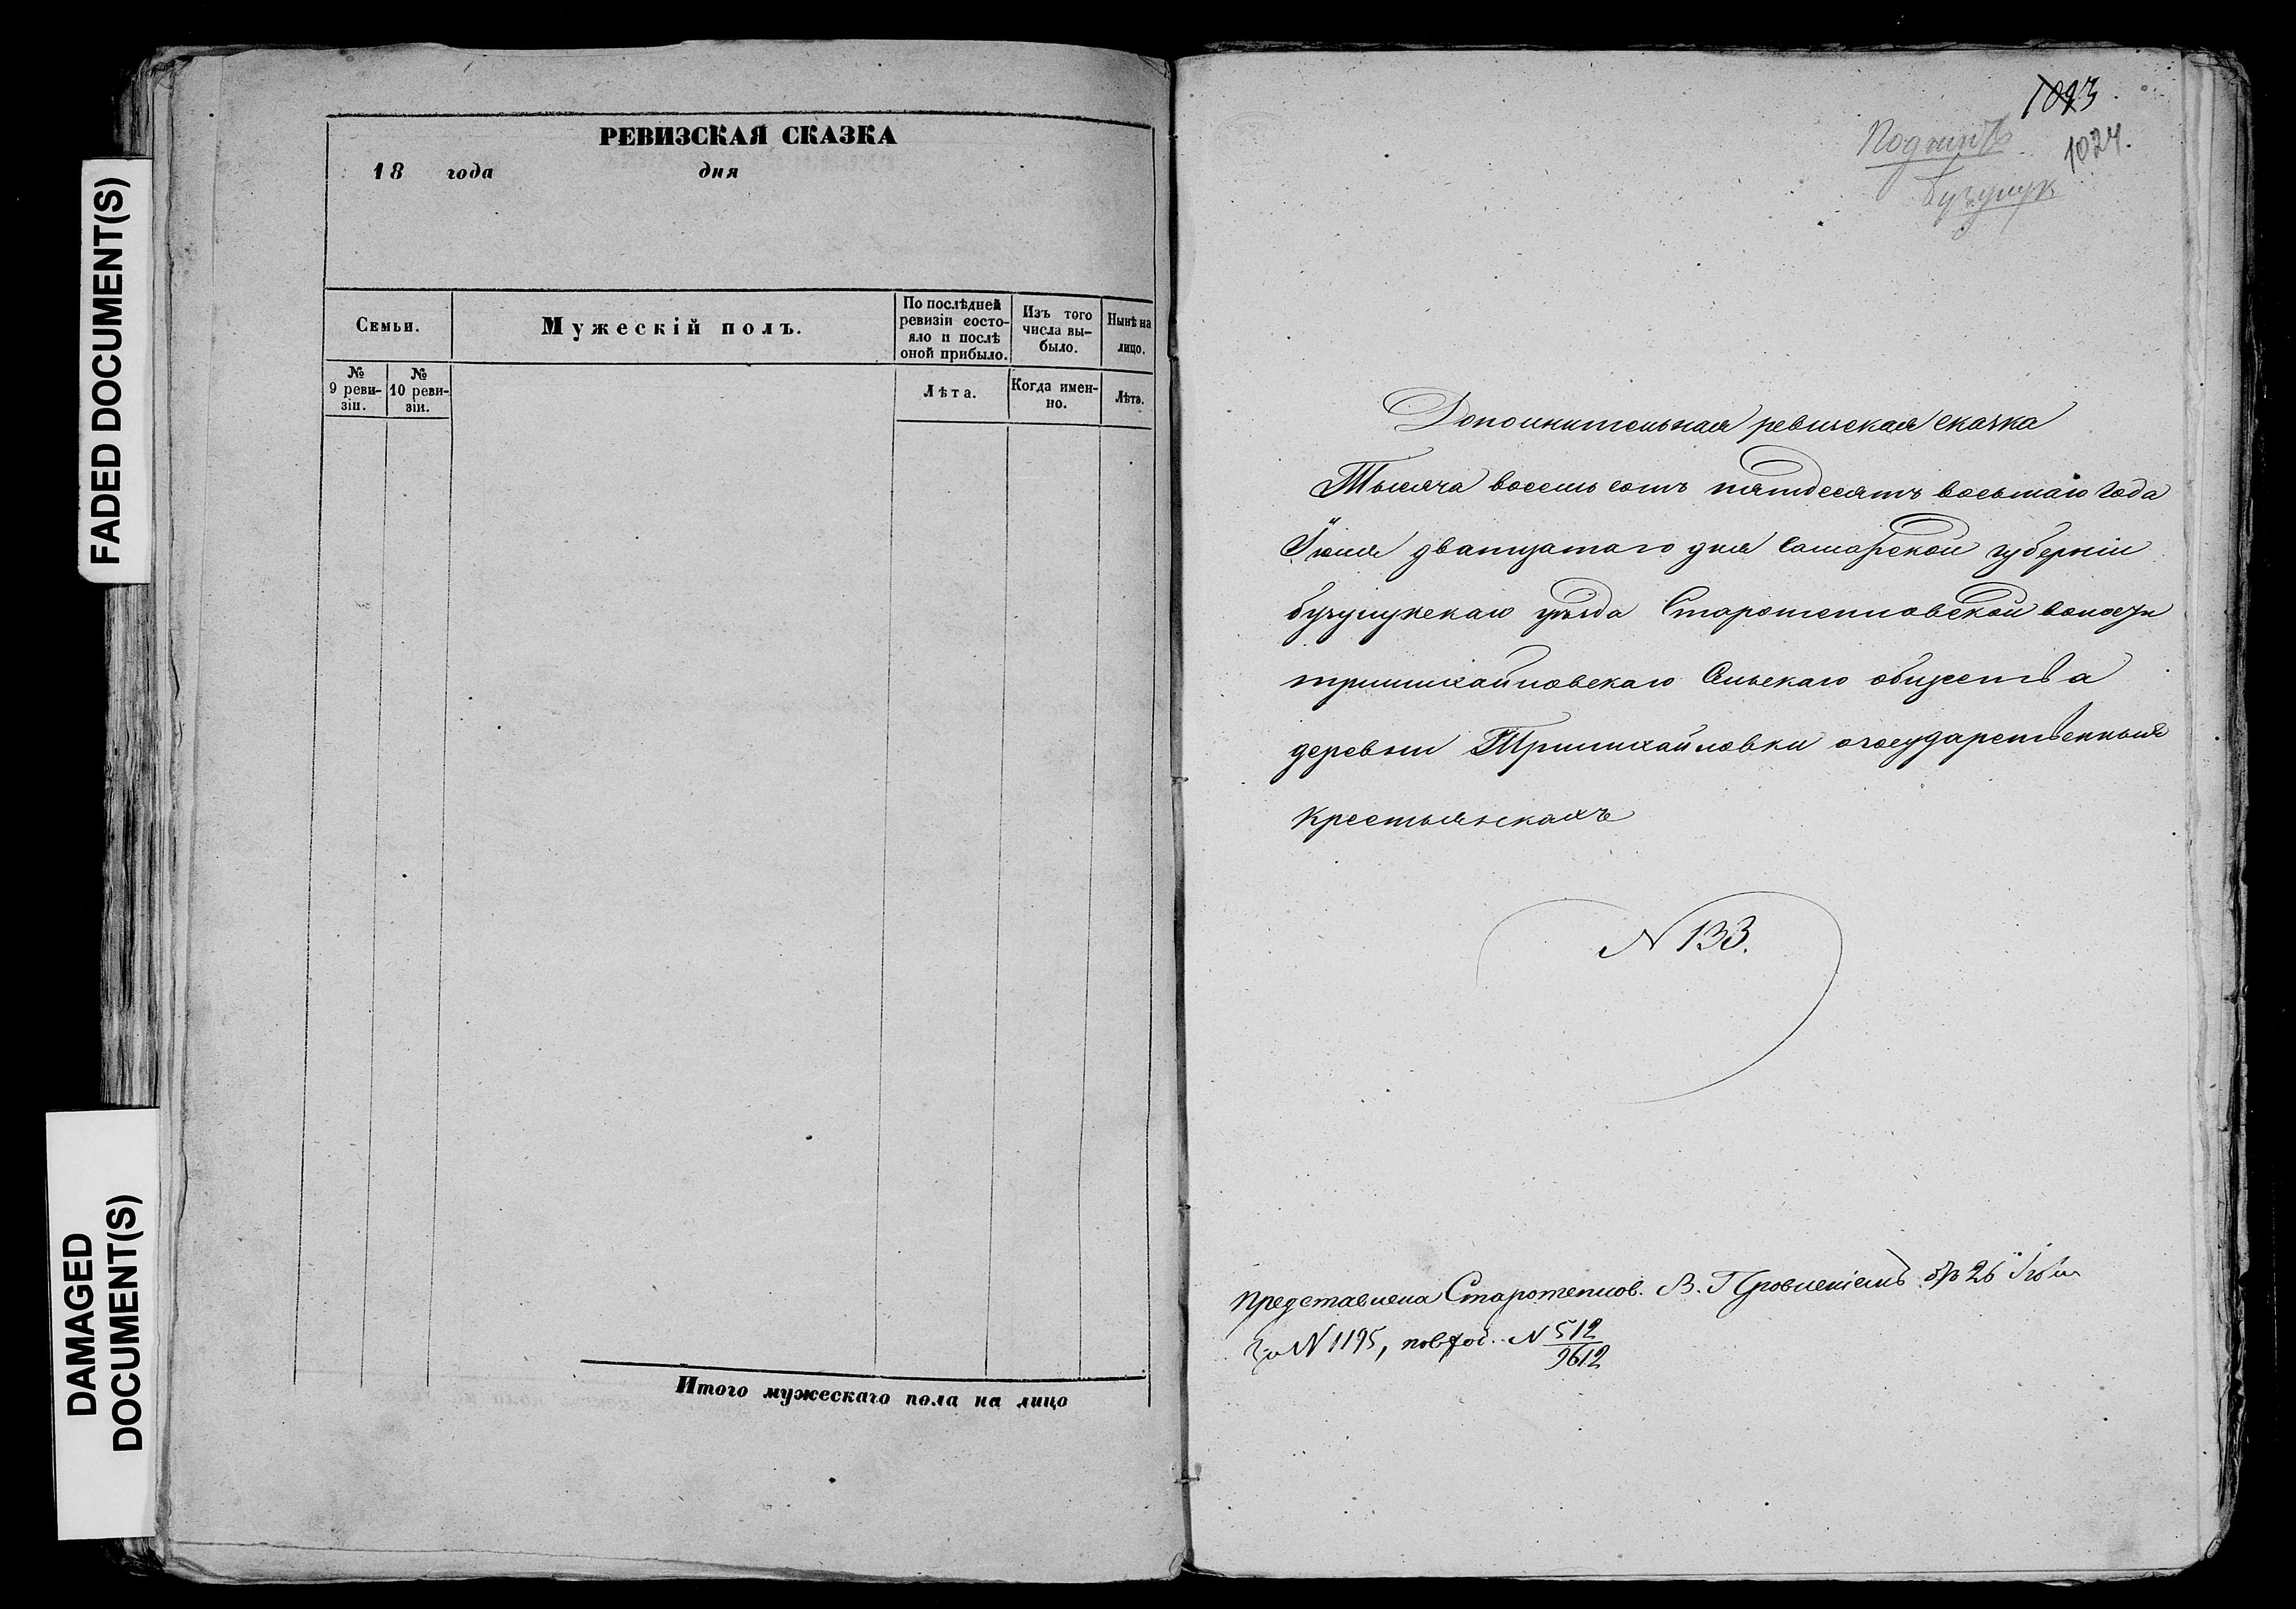 FADED DOCUMENT(S)
DAMAGED
DOCUMENT(S)
РЕВИЗСКАЯ СКАЗКА
18 года дня
Семьи.
Мужескій полъ.
По послѣдней
ревизіи состо-
яло и послѣ
оной прибыло.
Изъ того
числа вы-
было.
Нынѣ на
лицо.
№
9 реви-
зіи.
№
10 реви-
зіи.
Лѣта.
Когда имен-
но.
Лѣта.
Итого мужескаго пола на лицо
1093
1024.
Бузулук
Дополнительная ревизская сказка
Тысяча восемь сотъ пятдесятъ восьмаго года
Іюля дватцатаго дня Самарской губерніи
бузулукскаго уѣзда Старотепловской волости
тримихайловскаго Сельскаго общества
деревни Тримихайловки огосударственныхъ
крестьянскахъ
N 133.
Представлена Старотеплов. В. Правленіемъ отъ 26 Іюля
за N 1195, N 512
9612